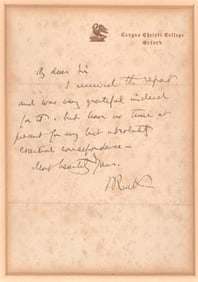 Corpus Christi College
Oxford
My dear Sir
I received the report
and was very grateful indeed
for it, but have no time at
present for any but absolutely
essential correspondence
Most heartily Yours.
JRuskin